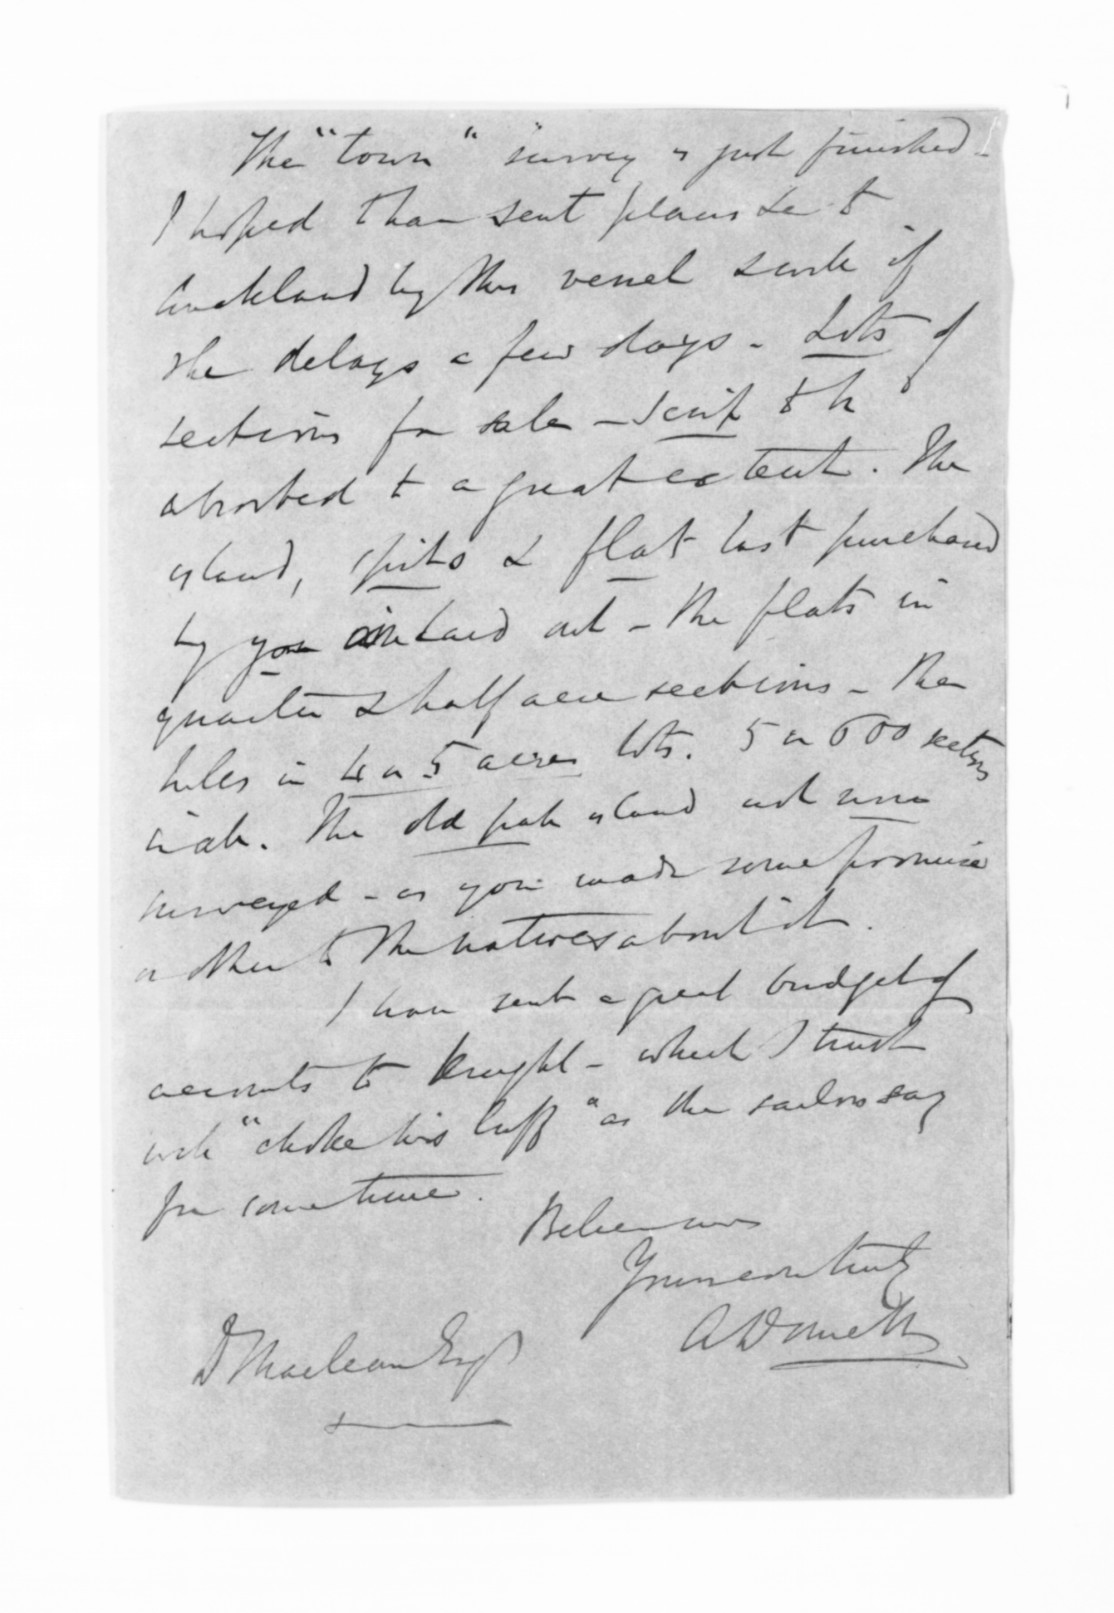 The "town" survey is just finished -
I hoped to have sent plans &c to
Auckland by this vessel & will if
she delays a few days - Lots of
sections for sale - scrip to be
absorbed to a great extent. The
island, spits & flat last purchased
by you are laid out - the flats in
quarter & half acre sections - the
hills in 4 or 5 acres lots. 5 or 600 sections
in all. The old pah island not
surveyed - as you made some promise
or other to the natives about it.
I have sent a great budget of
accounts to Knight - which I trust
will "choke his luff" as the sailors say
for some time.
Believe me
Yours very truly
A Domett
D Maclean Esq